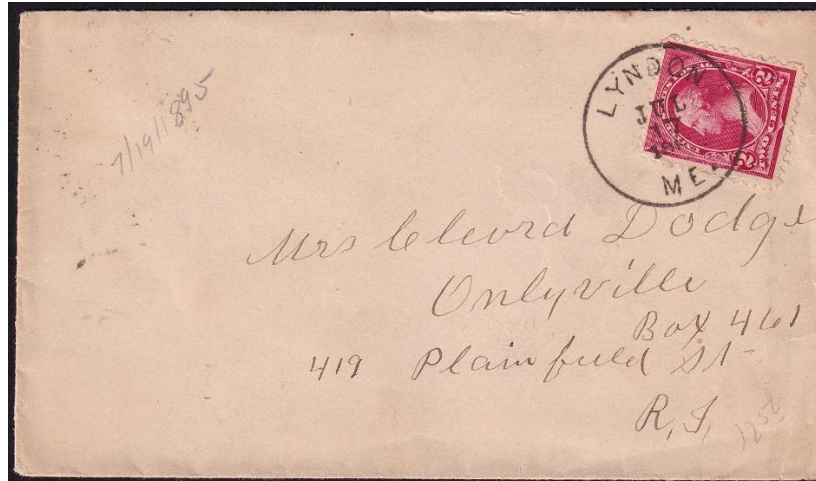 7/19/1895
LYNDON
JUL
17
ME.
2 2
TWO CENTS
Mrs Dodge
Onlyville
Box 461
419 Plainfield St
R.I.